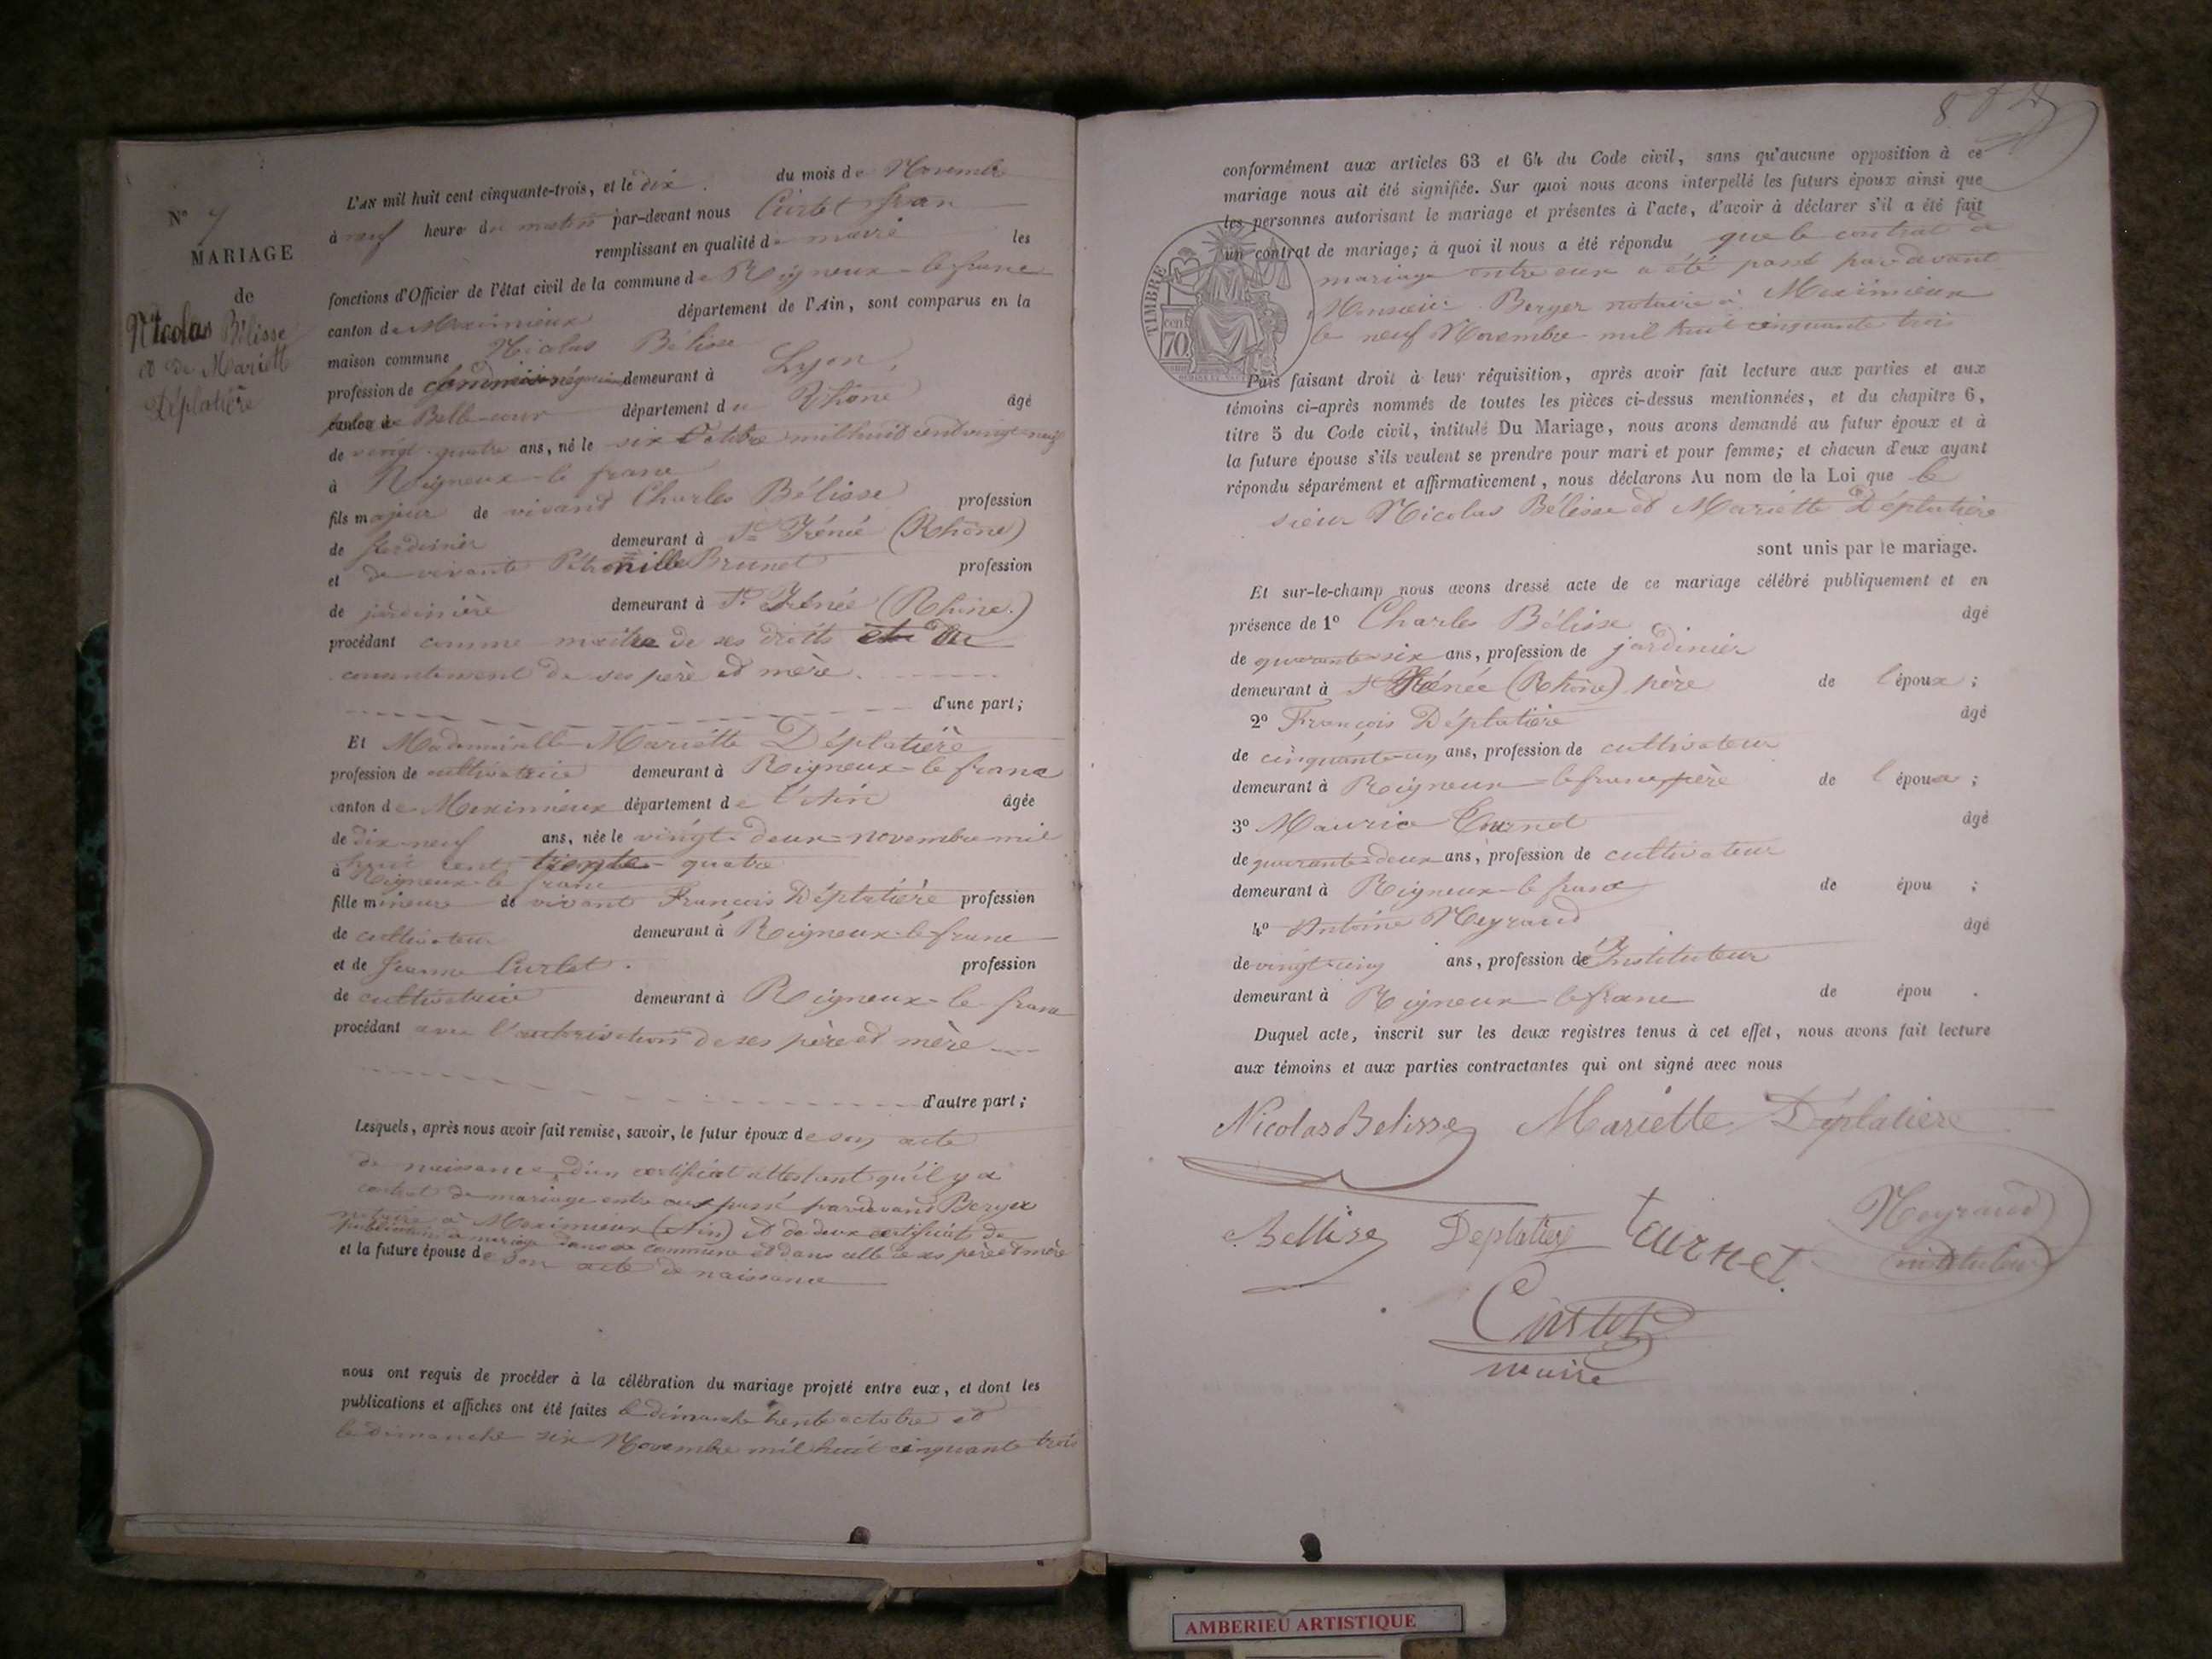 N° 7
MARIAGE
de
Nicolas Bélisse
et de Mariette
Déplatière
L'AN mil huit cent cinquante-trois, et le dix du mois de Novembre
à neuf heure du matin par-devant nous Curlet Jean
remplissant en qualité de maire les
fonctions d'Officier de l'état civil de la commune de Rigneux-le franc
canton de Meximieux département de l'Ain, sont comparus en la
maison commune Nicolas Bélisse
profession de commis négociant demeurant à Lyon,
canton de Belle-cour département du Rhône âgé
de vingt-quatre ans, né le six Octobre mil huit cent vingt-neuf
à Rigneux-le franc
fils majeur de vivant Charles Bélisse profession
de jardinier demeurant à St Irénée (Rhône)
et de vivante Pétronille Brunet profession
de jardinière demeurant à St Irénée (Rhône.)
procédant comme maitre de ses droits et du
consentement de ses père et mère.
d'une part;
Et Mademoiselle Mariette Déplatière
profession de cultivatrice demeurant à Rigneux-le franc
canton de Meximieux département de l'Ain âgée
de dix-neuf ans, née le vingt-deux novembre mil
huit cent trente-quatre
à Rigneux-le franc
fille mineure de vivant François Déplatière profession
de cultivateur demeurant à Rigneux-le-franc
et de Jeanne Curlet. profession
de cultivatrice demeurant à Rigneux-le-franc
procédant avec l'autorisation de ses père et mère
d'autre part;
Lesquels, après nous avoir fait remise, savoir, le futur époux de son acte
de naissance, d'un certificat attestant qu'il y a
contrat de mariage entre eux passé pardevant Berger
notaire à Meximieux (Ain) et de deux certificat de
publication de mariage dans sa commune et dans celle de ses père et mère
et la future épouse de son acte de naissance
nous ont requis de procéder à la célébration du mariage projeté entre eux, et dont les
publications et affiches ont été faites le dimanche trente octobre et
le dimanche six Novembre mil huit cinquante trois
conformément aux articles 63 et 64 du Code civil, sans qu'aucune opposition à ce
mariage nous ait été signifiée. Sur quoi nous avons interpellé les futurs époux ainsi que
les personnes autorisant le mariage et présentes à l'acte, d'avoir à déclarer s'il a été fait
un contrat de mariage; à quoi il nous a été répondu que le contrat de
mariage entre eux a été passé par-devant
Monsieur Berger notaire à Meximieux
le neuf Novembre mil huit cinquante trois
TIMBRE
cent
70
Puis faisant droit à leur réquisition, après avoir fait lecture aux parties et aux
témoins ci-après nommés de toutes les pièces ci-dessus mentionnées, et du chapitre 6,
titre 5 du Code civil, intitulé Du Mariage, nous avons demandé au futur époux et à
la future épouse s'ils veulent se prendre pour mari et pour femme; et chacun d'eux ayant
répondu séparément et affirmativement, nous déclarons Au nom de la Loi que le
sieur Nicolas Bélisse et Mariette Déplatière
sont unis par le mariage.
Et sur-le-champ nous avons dressé acte de ce mariage célébré publiquement et en
présence de 1° Charles Bélisse âgé
de quarante-six ans, profession de jardinier
demeurant à St Irénée (Rhône) père de l'époux;
2° François Déplatière âgé
de cinquante-un ans, profession de cultivateur
demeurant à Rigneux-le franc père de l'épouse;
3° Maurice Tournet âgé
de quarante-deux ans, profession de cultivateur
demeurant à Rigneux-le franc de épou ;
4° Antoine Meyraud âgé
de vingt-cinq ans, profession de Instituteur
demeurant à Rigneux-le franc de épou .
Duquel acte, inscrit sur les deux registres tenus à cet effet, nous avons fait lecture
aux témoins et aux parties contractantes qui ont signé avec nous
Nicolas Belisse Mariette Déplatiere
Bellise Deplatier Meyraud
instituteur
Curlet
maire
AMBERIEU ARTISTIQUE